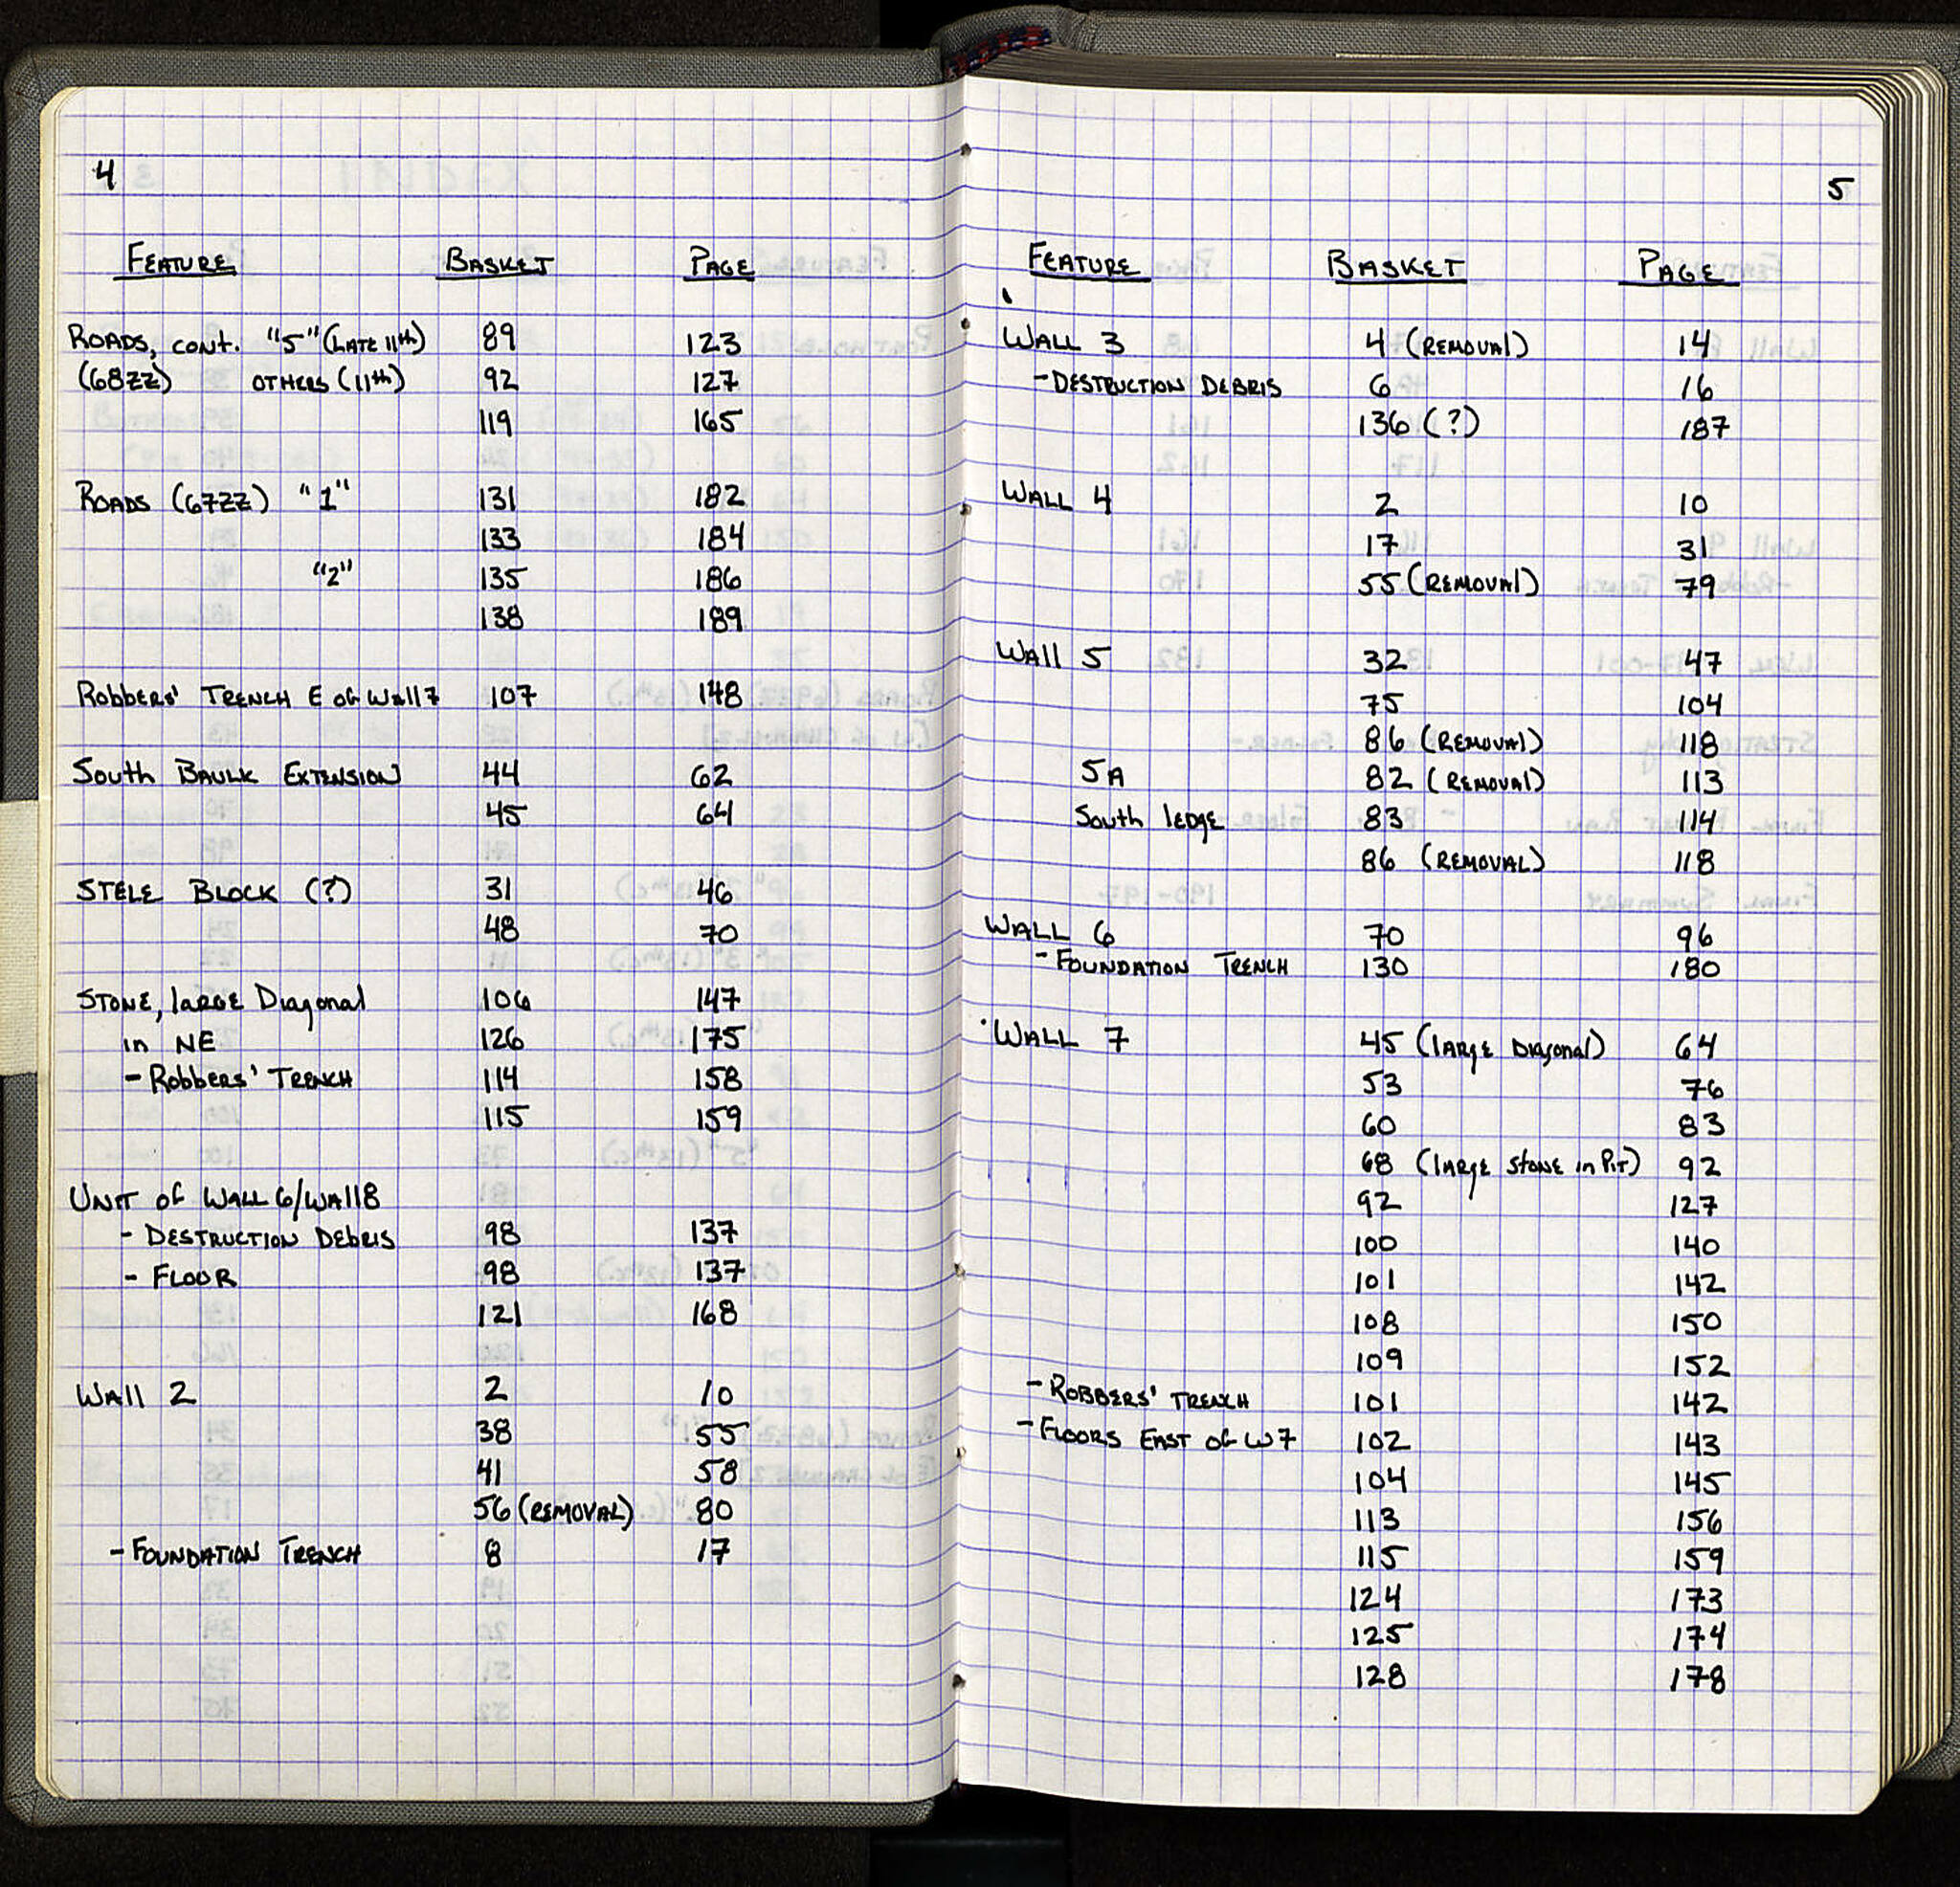 4
FEATURE BASKET PAGE
ROADS, CONT. "5" (LATE 11th) 89 123
(68ZZ) OTHERS (11th) 92 127
119 165
ROADS (67ZZ) "1" 131 182
133 184
"2" 135 186
138 189
Robbers' TRENCH E of Wall 7 107 148
South BAULK EXTENSION 44 62
45 64
STELE BLOCK (?) 31 46
48 70
STONE, large Diagonal 106 147
in NE 126 175
- Robbers' TRENCH 114 158
115 159
UNIT of WALL 6/WAll8
- DESTRUCTION DEbRIS 98 137
- FLOOR 98 137
121 168
WAll 2 2 10
38 55
41 58
56 (REMOVAL) 80
- FOUNDATION TRENCH 8 17
5
FEATURE BASKET PAGE
WALL 3 4 (REMOVAl) 14
- DESTRUCTION DEBRIS 6 16
136 (?) 187
WALL 4 2 10
17 31
55 (REMOVAl) 79
WAll 5 32 47
75 104
86 (REMOVAl) 118
5A 82 (REMOVAl) 113
South ledge 83 114
86 (REMOVAL) 118
WALL 6 70 96
- FOUNDATION TRENCH 130 180
WALL 7 45 (lARgE DIAgonal) 64
53 76
60 83
68 (lARgE StonE in PiT) 92
92 127
100 140
101 142
108 150
109 152
- ROBBERS' TRENCH 101 142
- FlOORS EAST of W7 102 143
104 145
113 156
115 159
124 173
125 174
128 178